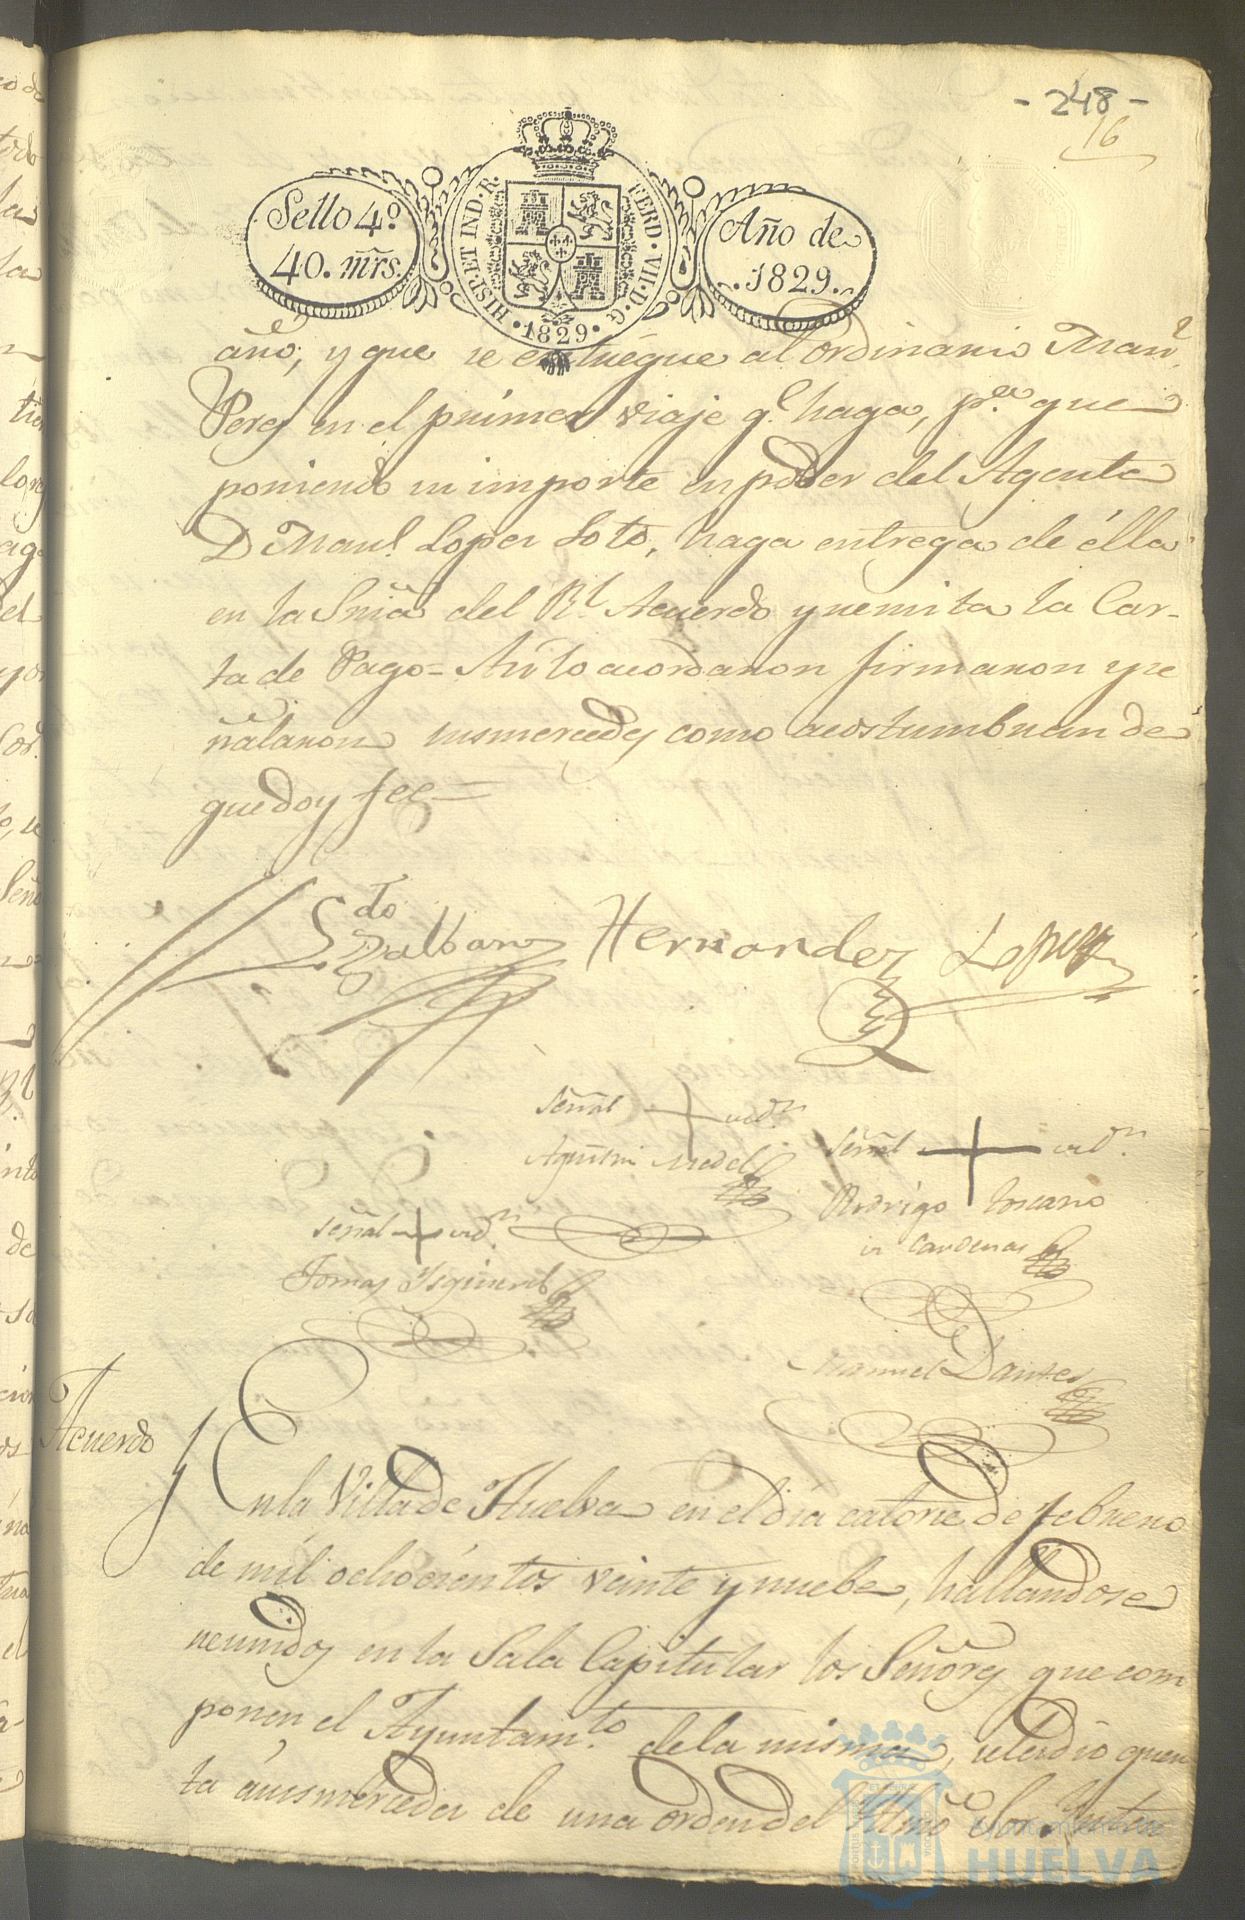 - 248 -
16
Sello 4.º
40. mrs.
HISP. ET IND. R.
FERD. VII. D. G.
1829
Año de
1829.
año, y que se entriegue al ordinario Man.l
Perez en el primer viaje q.e haga, p.a que
poniendo su importe en poder del Agente
D Man.l Lopez Soto, haga entrega de élla
en la Sria del R.l Acuerdo y remita la Car-
ta de Pago = Asi lo acordaron firmaron y se
ñalaron susmercedes como acostumbran de
que doy fee =
Ldo Galban
Hernandez
Lopez
Señal + del Sr.
Agustin Medel
Señal + del Sr.
Rodrigo Toscano
Cardenas
Señal + del Sr.
Tomas Ysquierdo
Manuel Dantes
Acuerdo
En la Villa de Huelva en el dia catorse de febrero
de mil ochocientos veinte y nuebe, hallandose
reunidos en la Sala Capitular los Señores que com
ponen el Ayuntam.to de la misma, se le dio quen
ta á susmercedes de una orden del Yltmo Sor.
Ayuntamiento de
HUELVA